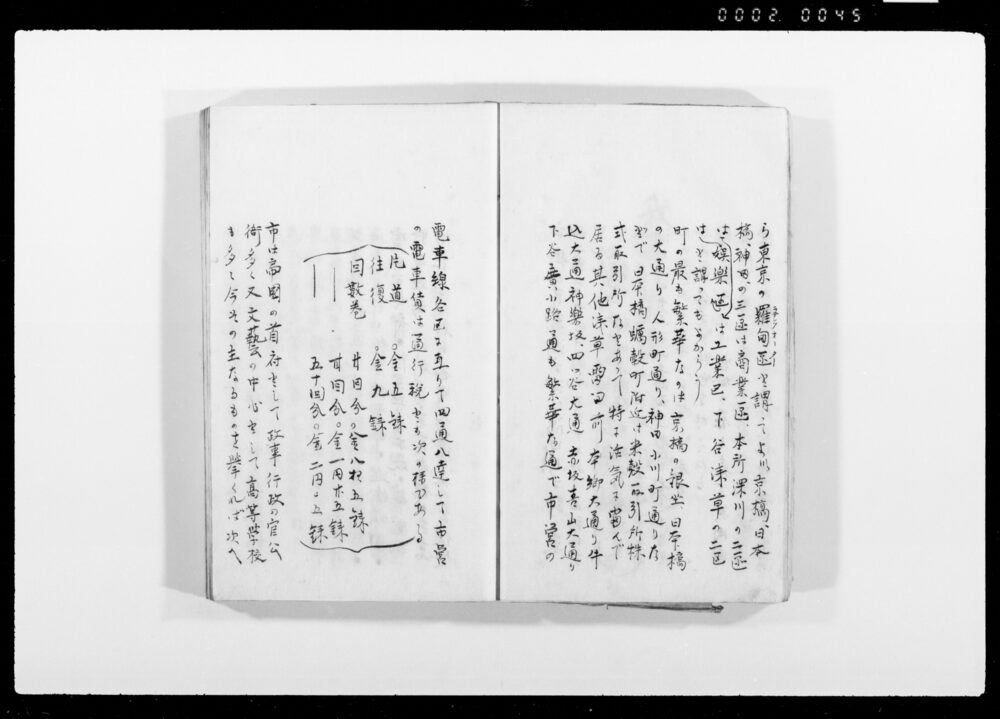 0002 0045
ら東京の羅甸区と謂つてよい京橋、日本
橋、神田、の三区は商業区、本所深川の二区
は工業区、下谷浅草の二区
は娯楽区と謂つてもよからう
町の最も繁華なのは京橋の銀坐、日本橋
の大通り、人形町通り、神田小川町通りな
どで日本橋蠣殻町附近は米穀取引所株
式取引所などあつて特に活気に富んで
居る其他浅草雷門前本郷大通り牛
込大通神楽坂四谷大通赤坂青山大通り
下谷広小路通も繁華な通で市営の
電車線各区に亙りて四通八達して市営
の電車賃は通行税とも次の様である
片道 金五銭
往復 金九銭
回数巻 廿回分の金八拾五銭
〃 卅回分 金一円廿五銭
〃 五十回分の金二円〇五銭
市は帝国の首府として政事行政の官公
衙多く又文藝の中心として高等学校
も多く今その主なるものを挙ぐれば次の